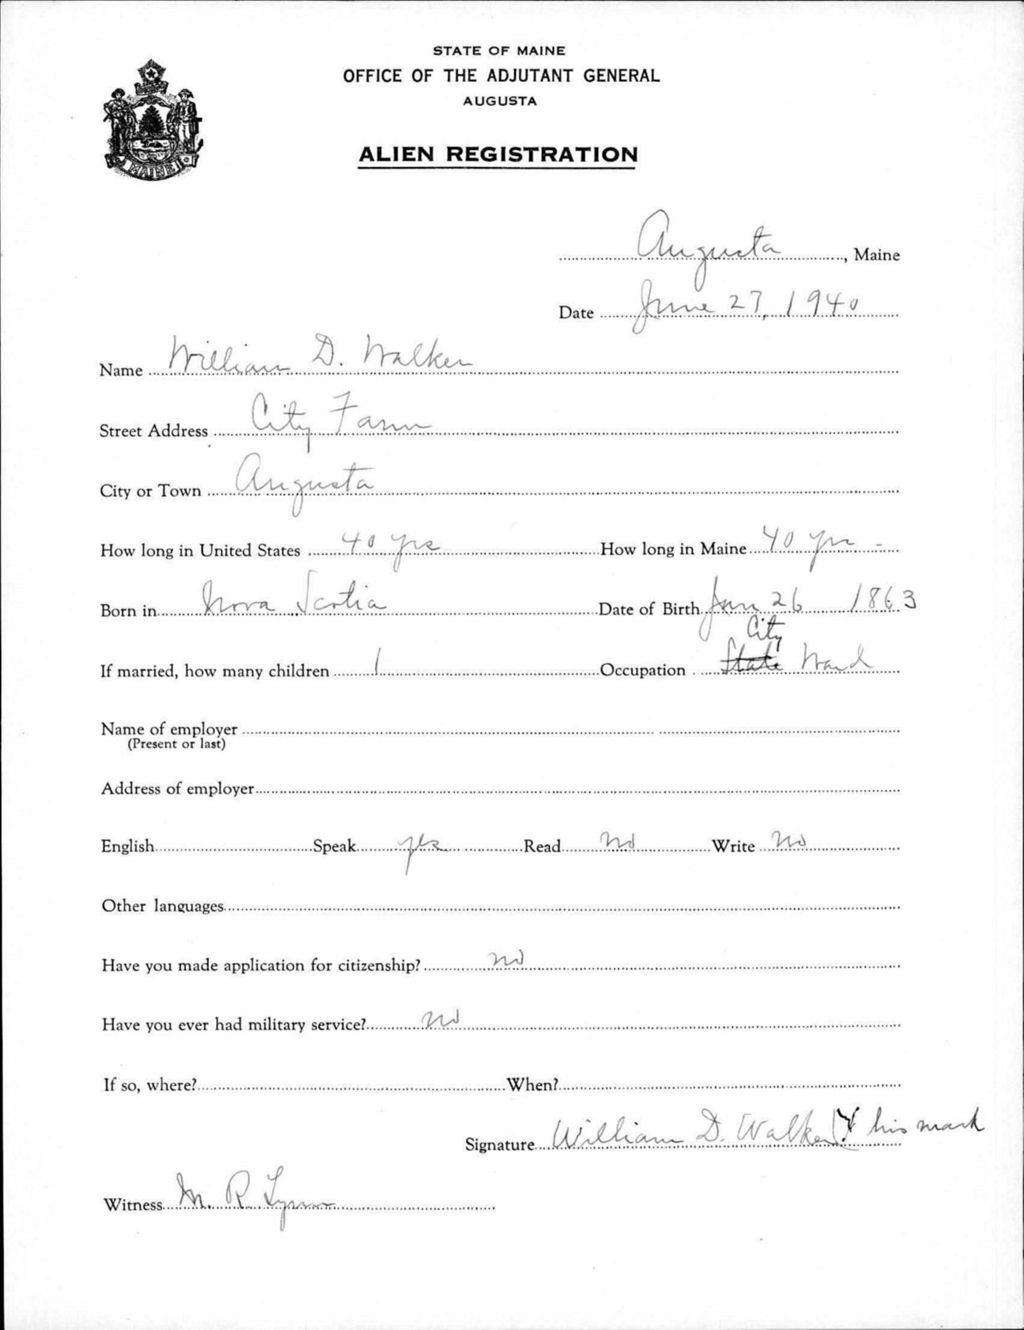 STATE OF MAINE
OFFICE OF THE ADJUTANT GENERAL
AUGUSTA
ALIEN REGISTRATION
MAINE
Augusta, Maine
Date June 27, 1940
Name William D. Walker
Street Address City Farm
City or Town Augusta
How long in United States 40 yrs How long in Maine 40 yrs
Born in Nova Scotia Date of Birth Jan 26 1863
City
If married, how many children 1 Occupation State Ward
Name of employer
(Present or last)
Address of employer
English Speak yes Read No Write No
Other languages
Have you made application for citizenship? no
Have you ever had military service? no
If so, where? When?
Signature William D. Walker X his mark
Witness M. R.